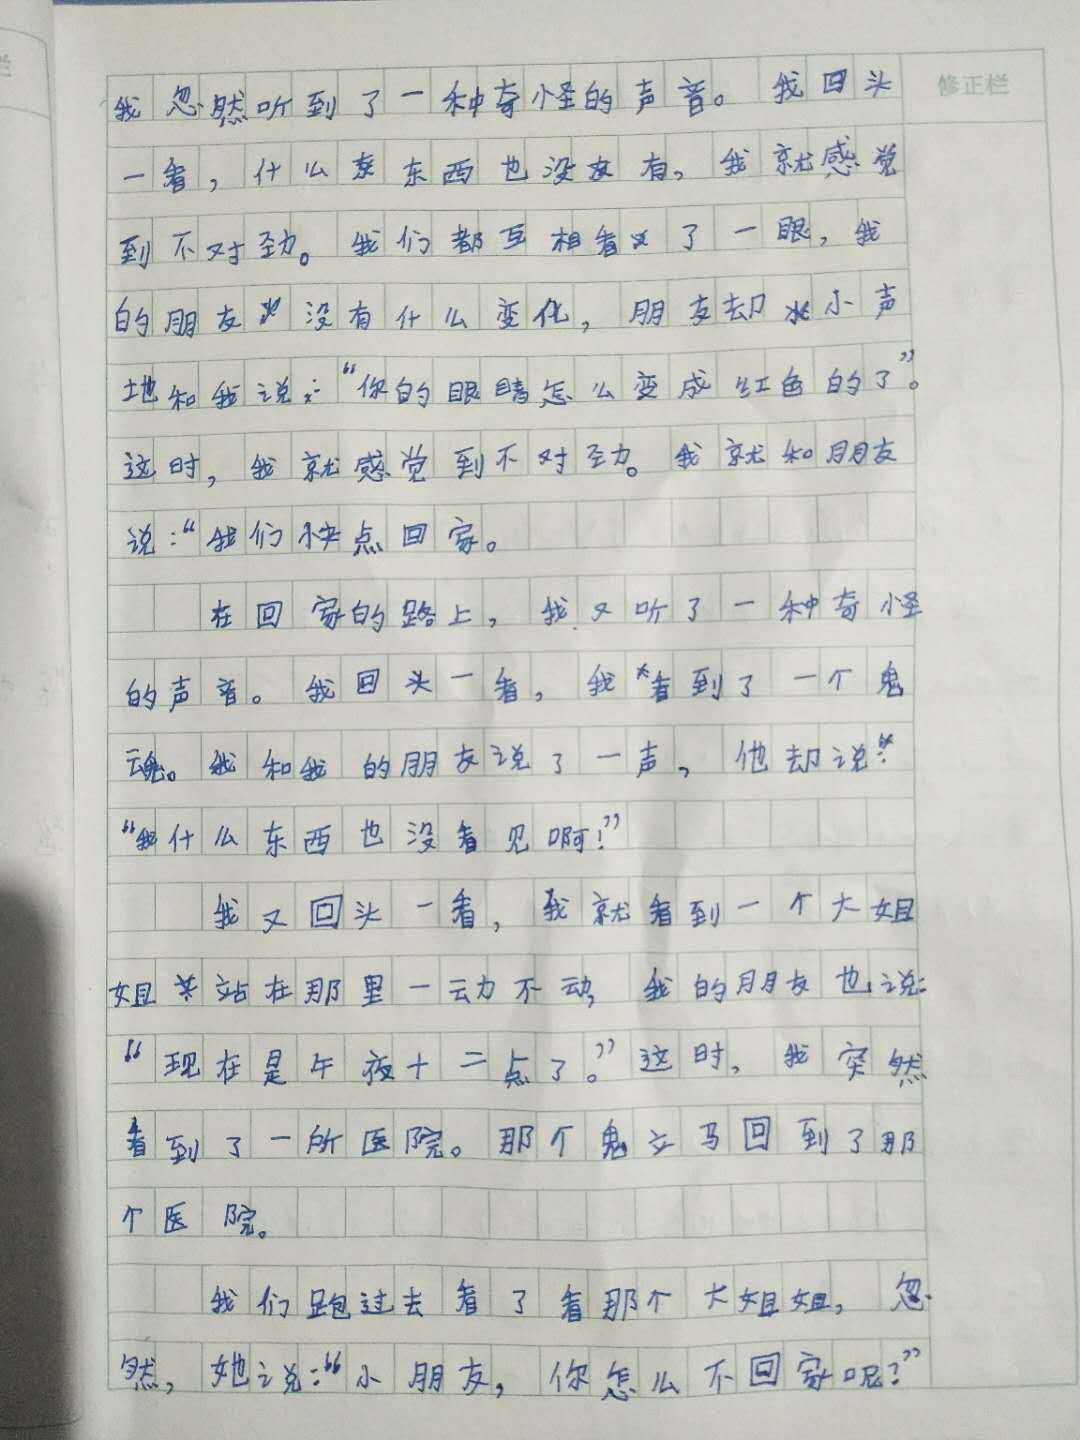 修正栏
我忽然听到了一种奇怪的声音。我回头
一看，什么东西也没有，我就感觉
到不对劲。我们都互相看了一眼，我
的朋友没有什么变化，朋友却小声
地和我说：“你的眼睛怎么变成红色的了”。
这时，我就感觉到不对劲。我就和朋友
说：“我们快点回家。
在回家的路上，我又听了一种奇怪
的声音。我回头一看，我看到了一个鬼
魂。我和我的朋友说了一声，他却说：
“我什么东西也没看见啊！”
我又回头一看，我就看到一个大姐
姐站在那里一动不动，我的朋友也说：
“现在是午夜十二点了。”这时，我突然
看到了一所医院。那个鬼立马回到了那
个医院。
我们跑过去看了看那个大姐姐，忽
然，她说：“小朋友，你怎么不回家呢？”